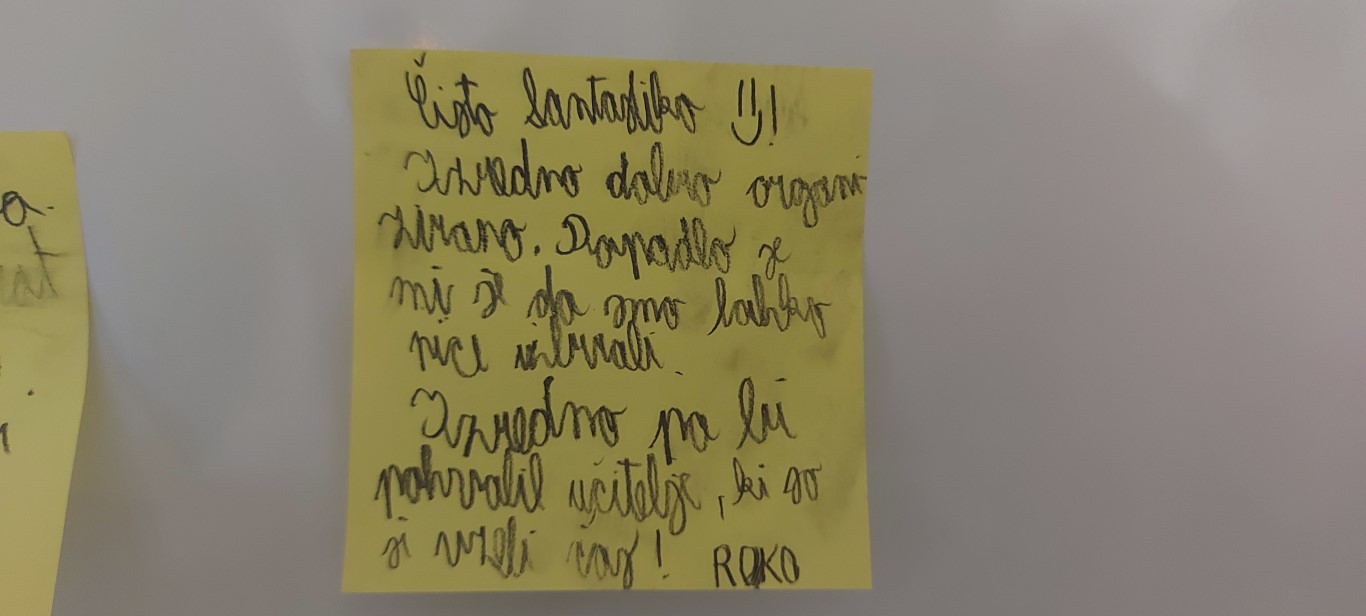 Čisto fantastiko :)!
Izredno dobro organi
zirano. Dopadlo se
mi je da smo lahko
nice izbirali.
Izredno pa bi
pohvalil učitelje, ki so
si vzeli čas! ROKO
a.
at